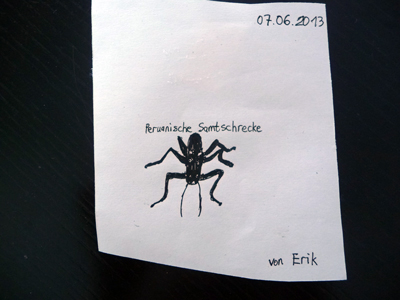 07.06.2013
Peruanische Samtschrecke
von Erik